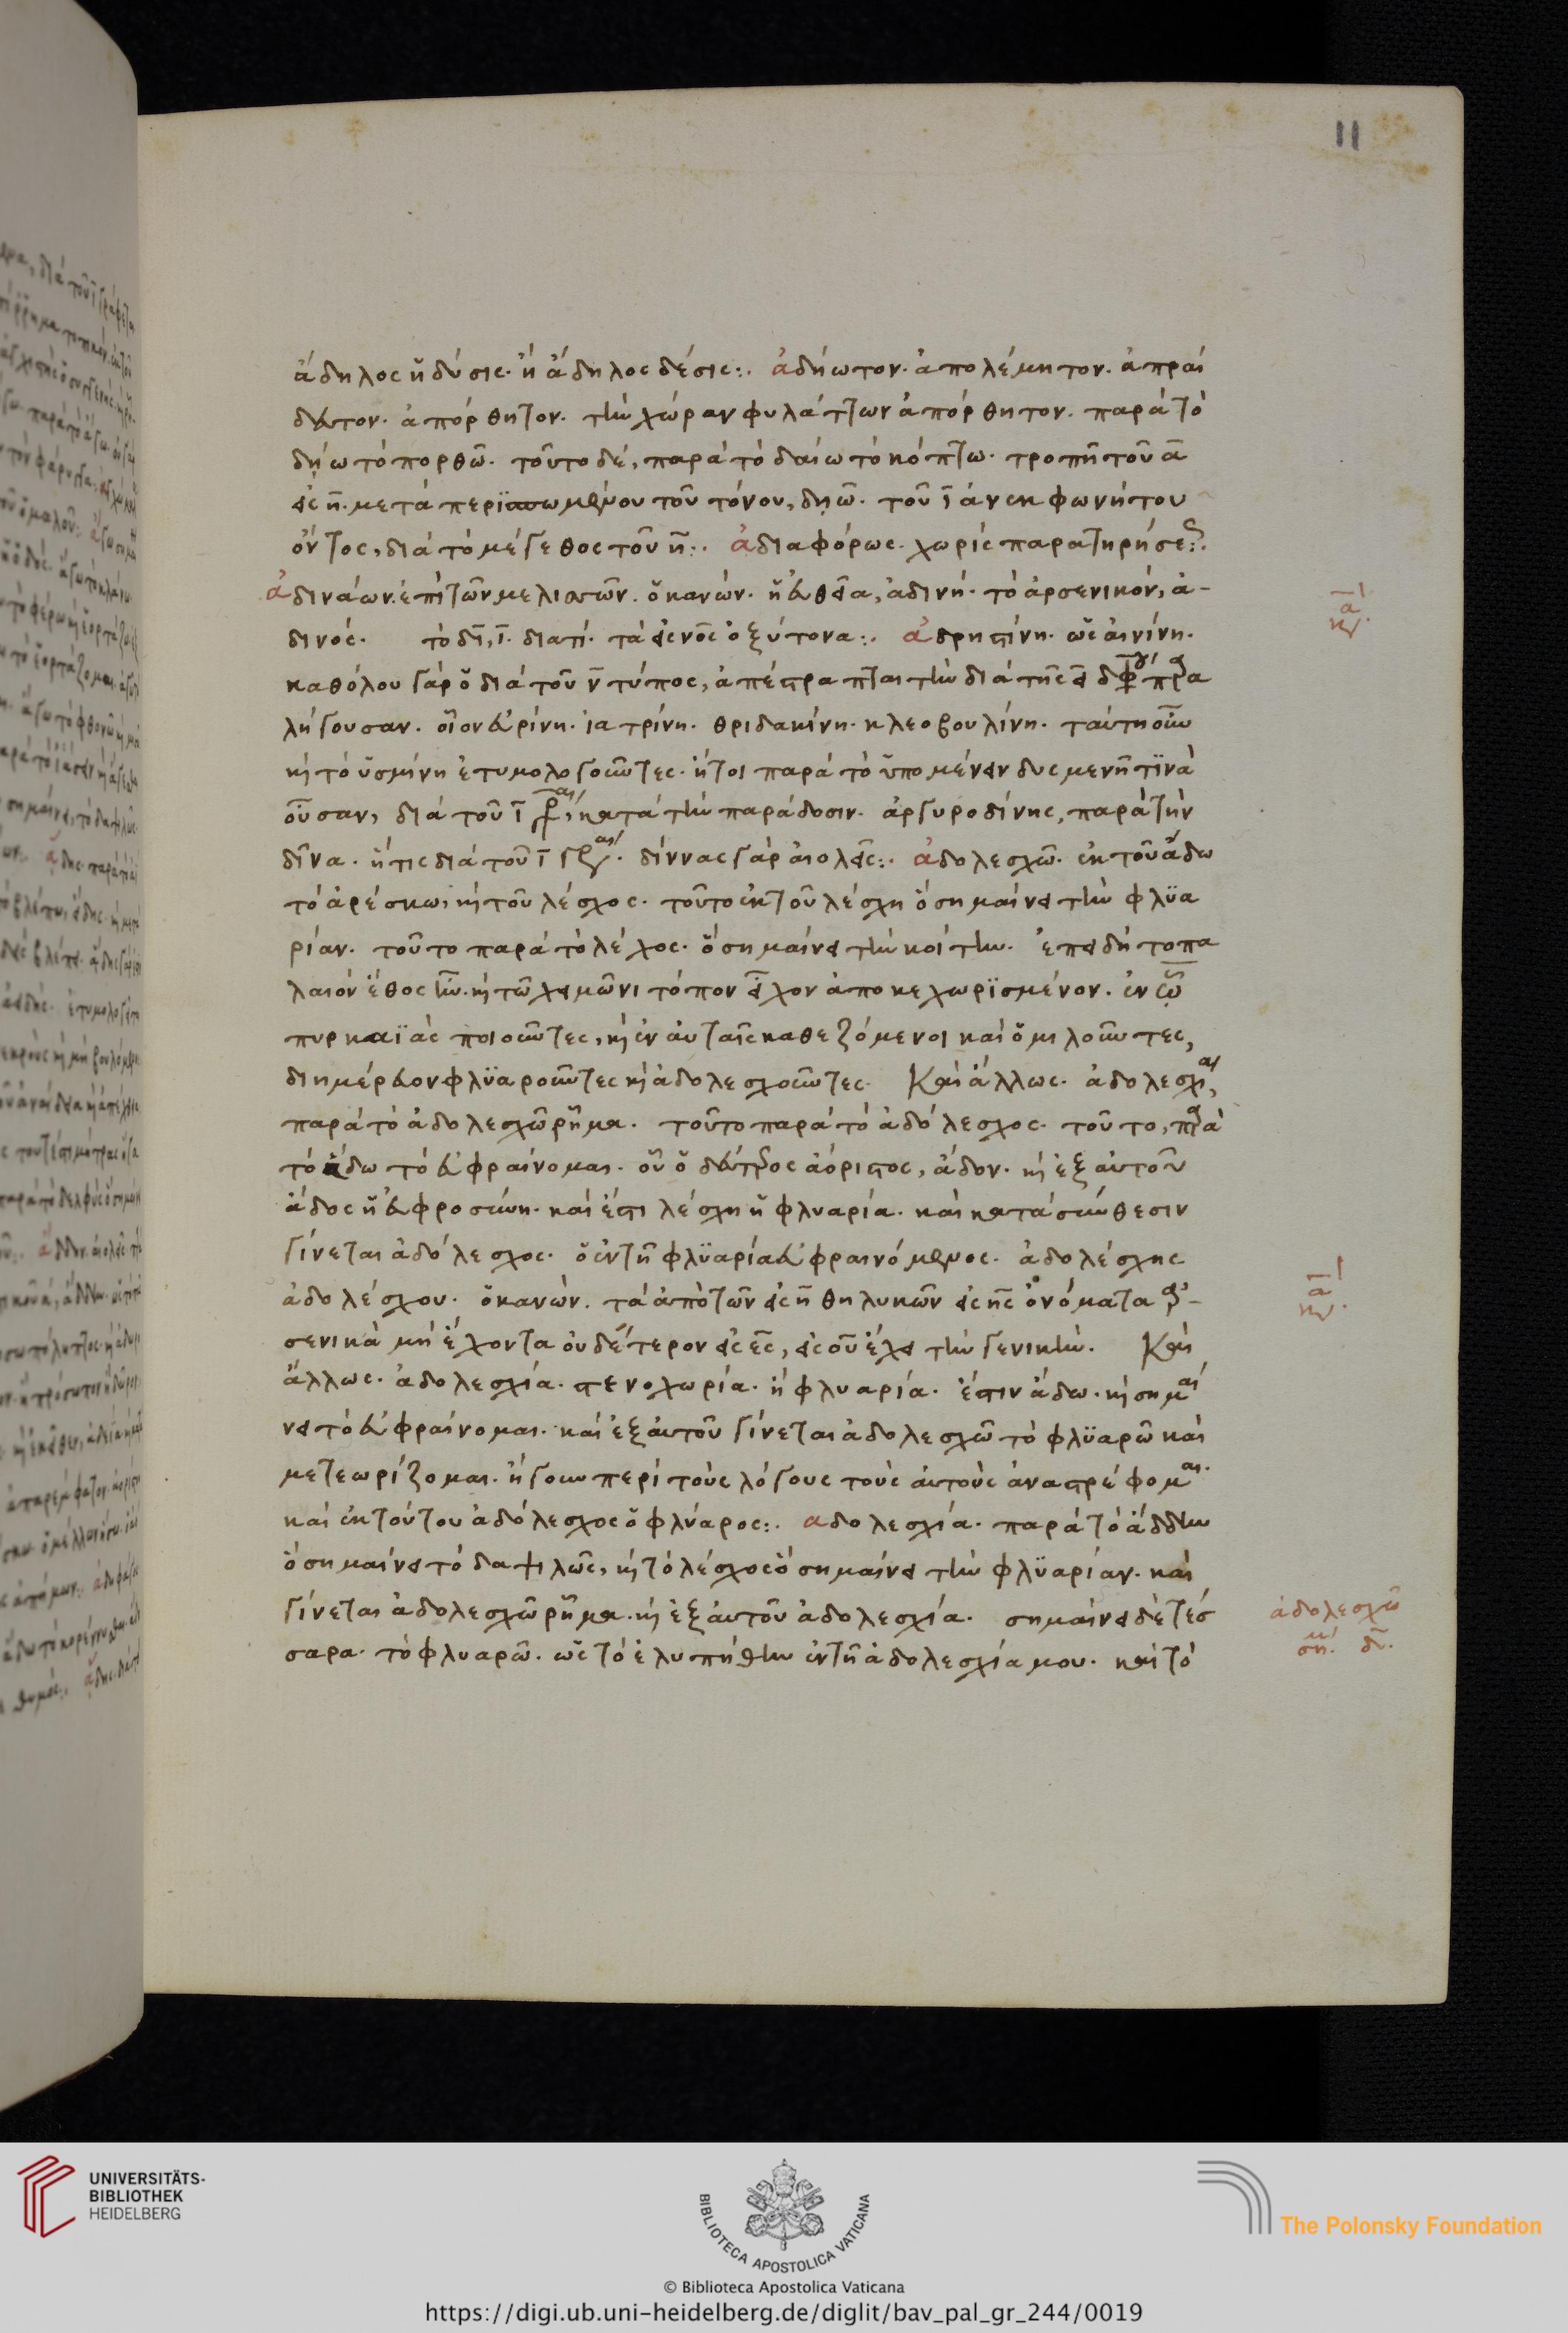 11
ἄδηλος ἡ δύσις. ἢ ἄδηλος δέσις:. ἀδήωτον. ἀπολέμητον. ἀπραί
δευτον. ἀπόρθητον. τὴν χώραν φυλάττων ἀπόρθητον. παρὰ τὸ
δήω τὸ πορθῶ. τοῦτο δὲ, παρὰ τὸ δαίω τὸ κόπτω. τροπῇ τοῦ α
εἰς η. μετὰ περισπωμένου τοῦ τόνου, δῃῶ. τοῦ ι ἀνεκφωνήτου
ὄντος, διὰ τὸ μέγεθος τοῦ η:. ἀδιαφόρως. χωρὶς παρατηρήσε:.
ἀδινάων. ἐπὶ τῶν μελισσῶν. ὁ κανών. ἡ εὐθεῖα, ἀδινή. τὸ ἀρσενικόν, ἀ-
δινός. τὸ δι, ι. διατί. τὰ εἰς νος ὀξύτονα:. ἀδρηστίνη. ὡς αἰνίνη.
καθόλου γὰρ ὁ διὰ τοῦ ν τύπος, ἀπέστραπται τὴν διὰ τῆς ει διφ παρα
λήγουσαν. οἷον εὐρίνη. ἰατρίνη. θριδακίνη. κλεοβουλίνη. ταύτη οὖν
καὶ τὸ ὑσμίνη ἐτυμολογοῦντες. ἤτοι παρὰ τὸ ὑπομένειν δυσμενῆ τινὰ
οὖσαν, διὰ τοῦ ι κατὰ τὴν παράδοσιν. ἀργυροδίνης, παρὰ τὴν
δῖνα. ἥτις διὰ τοῦ ι γρ. δίννας γὰρ αἰολεῖς:. ἀδολεσχῶ. ἐκ τοῦ ἄδω
τὸ ἀρέσκω, καὶ τοῦ λέσχος. τοῦτο ἐκ τοῦ λέσχη ὃ σημαίνει τὴν φλϋα
ρίαν. τοῦτο παρὰ τὸ λέχος. ὃ σημαίνει τὴν κοίτην. ἐπειδὴ τὸ πα
λαιὸν ἔθος ἦν. καὶ τῷ χειμῶνι τόπον εἶχον ἀποκεχωρϊσμένον. ἐν ᾧ
πυρκαϊὰς ποιοῦντες, καὶ ἐν αὐταῖς καθεζόμενοι καὶ ὁμιλοῦντες,
διημέρευον φλϋαροῦντες καὶ ἀδολεσχοῦντες. Καὶ ἄλλως. ἀδολεσχία,
παρὰ τὸ ἀδολεσχῶ ῥῆμα. τοῦτο παρὰ τὸ ἀδόλεσχος. τοῦτο, παρὰ
τὸ ἄδω τὸ εὐφραίνομαι. οὗ ὁ δεύτερος ἀόριστος, ἄδον. καὶ ἐξ αὐτοῦ
ἄδος ἡ εὐφροσύνη. καὶ ἔστι λέσχη ἡ φλυαρία. καὶ κατὰ σύνθεσιν
γίνεται ἀδόλεσχος. ὁ ἐν τῇ φλϋαρία εὐφραινόμενος. ἀδολέσχης
ἀδολέσχου. ὁ κανών. τὰ ἀπὸ τῶν εἰς η θηλυκῶν εἰς ης ὀνόματα ἀρ-
σενικὰ μὴ ἔχοντα οὐδέτερον εἰς ες, εἰς ου ἔχει τὴν γενικήν. Καὶ
ἄλλως. ἀδολεσχία. στενοχωρία. ἢ φλυαρία. ἔστιν ἄδω. καὶ σημαί
νει τὸ εὐφραίνομαι. καὶ ἐξ αὐτοῦ γίνεται ἀδολεσχῶ τὸ φλϋαρῶ καὶ
μετεωρίζομαι. ἤγουν περὶ τοὺς λόγους τοὺς αὐτοὺς ἀναστρέφομαι.
καὶ ἐκ τούτου ἀδόλεσχος ὁ φλύαρος:. αδολεσχία. παρὰ τὸ ἄδδην
ὃ σημαίνει τὸ δαψιλῶς, καὶ τὸ λέσχος ὃ σημαίνει τὴν φλϋαρίαν. καὶ
γίνεται ἀδολεσχῶ ῥῆμα. καὶ ἐξ αὐτοῦ ἀδολεσχία. σημαίνει δὲ τέσ
σαρα. τὸ φλυαρῶ. ὡς τὸ ἐλυπήθην ἐν τῇ ἀδολεσχία μου. καὶ τὸ
ἀδολεσχῶ
ση. δ.
UNIVERSITÄTS-
BIBLIOTHEK
HEIDELBERG
BIBLIOTECA APOSTOLICA VATICANA
The Polonsky Foundation
© Biblioteca Apostolica Vaticana
https://digi.ub.uni-heidelberg.de/diglit/bav_pal_gr_244/0019